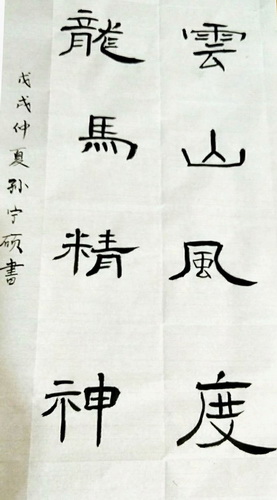 雲山風度
龍馬精神
戊戌仲夏孙宁硕書